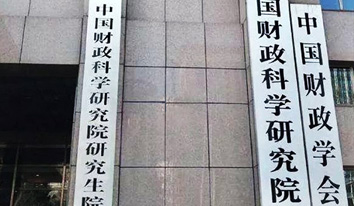 中国财政科学研究院研究生院
国财政科学研究院
中国财政学会